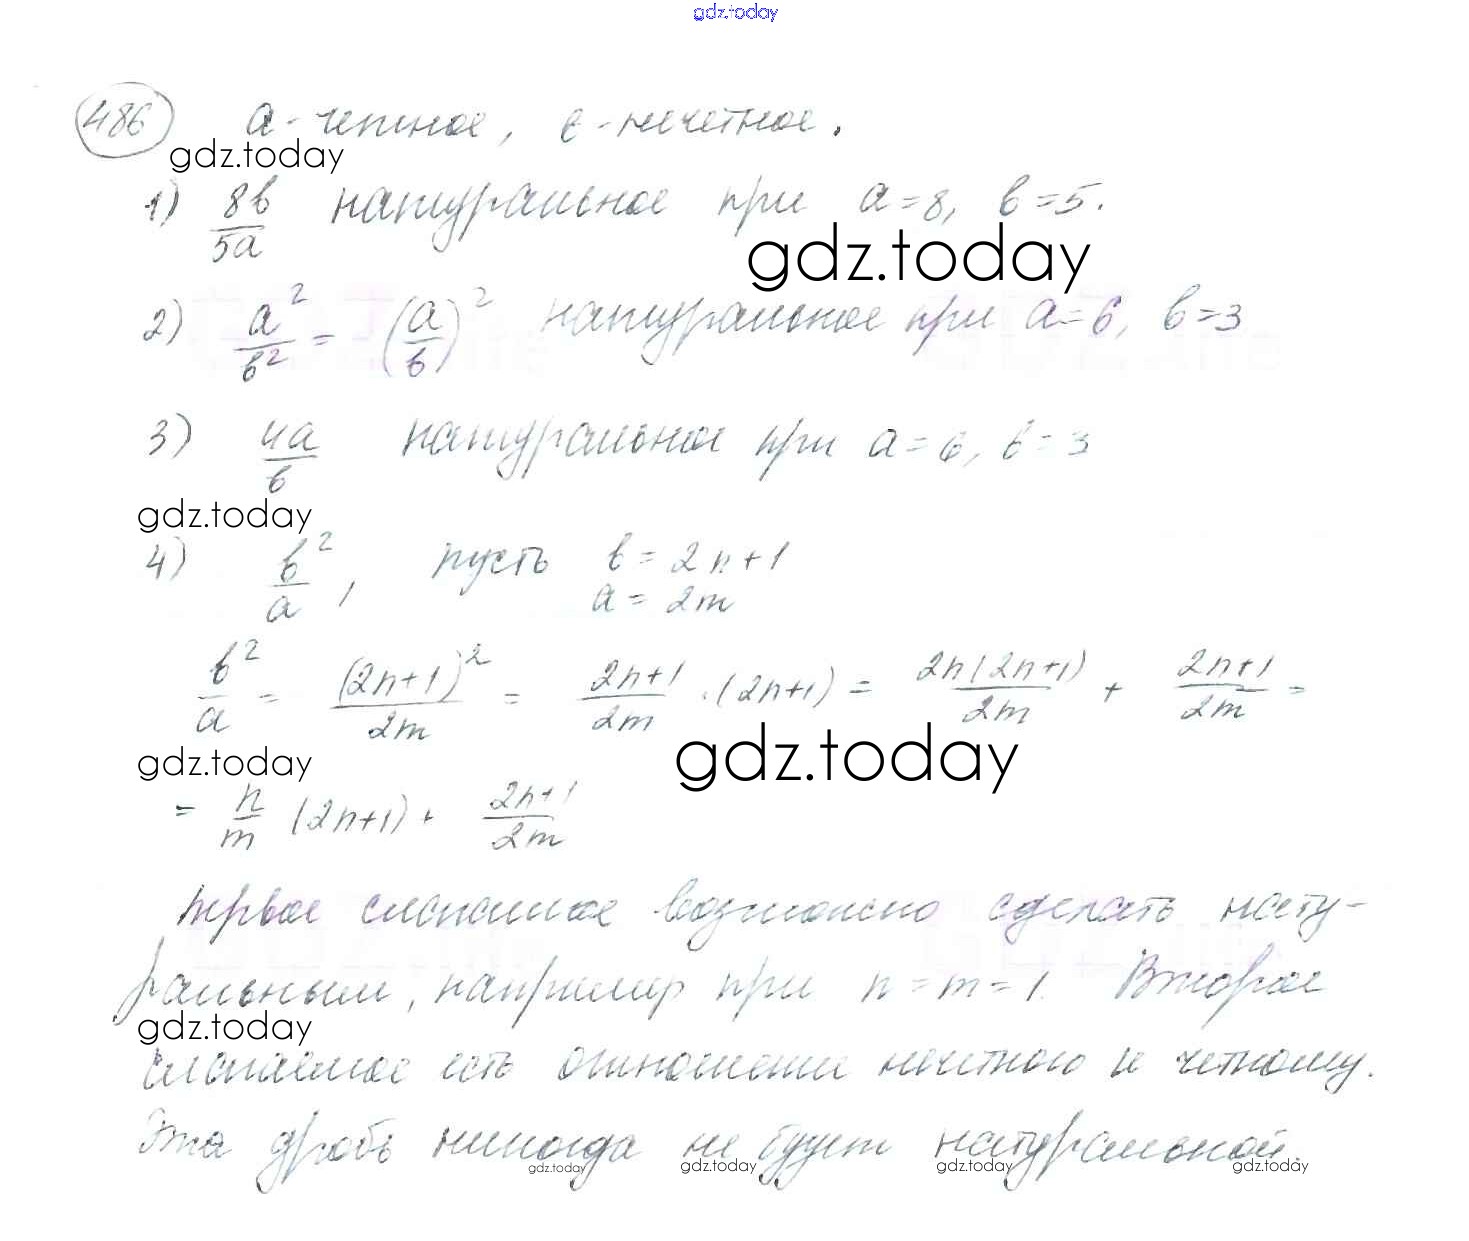 gdz.today
486 a - четное, b - нечетное.
gdz.today
1) 8b/5a натуральное при a=8, b=5.
gdz.today
2) a²/b² = (a/b)² натуральное при a=6, b=3
3) 4a/b натуральное при a=6, b=3
gdz.today
4) b²/a, пусть b = 2n+1
a = 2m
b²/a = (2n+1)²/2m = 2n+1/2m · (2n+1) = 2n(2n+1)/2m + 2n+1/2m =
gdz.today gdz.today
= n/m (2n+1) + 2n+1/2m
первое слагаемое возможно сделать нату-
ральным, например при n=m=1. Второе
gdz.today
слагаемое есть отношение нечетного к четному.
Эта дробь никогда не будет натуральной.
gdz.today gdz.today gdz.today gdz.today